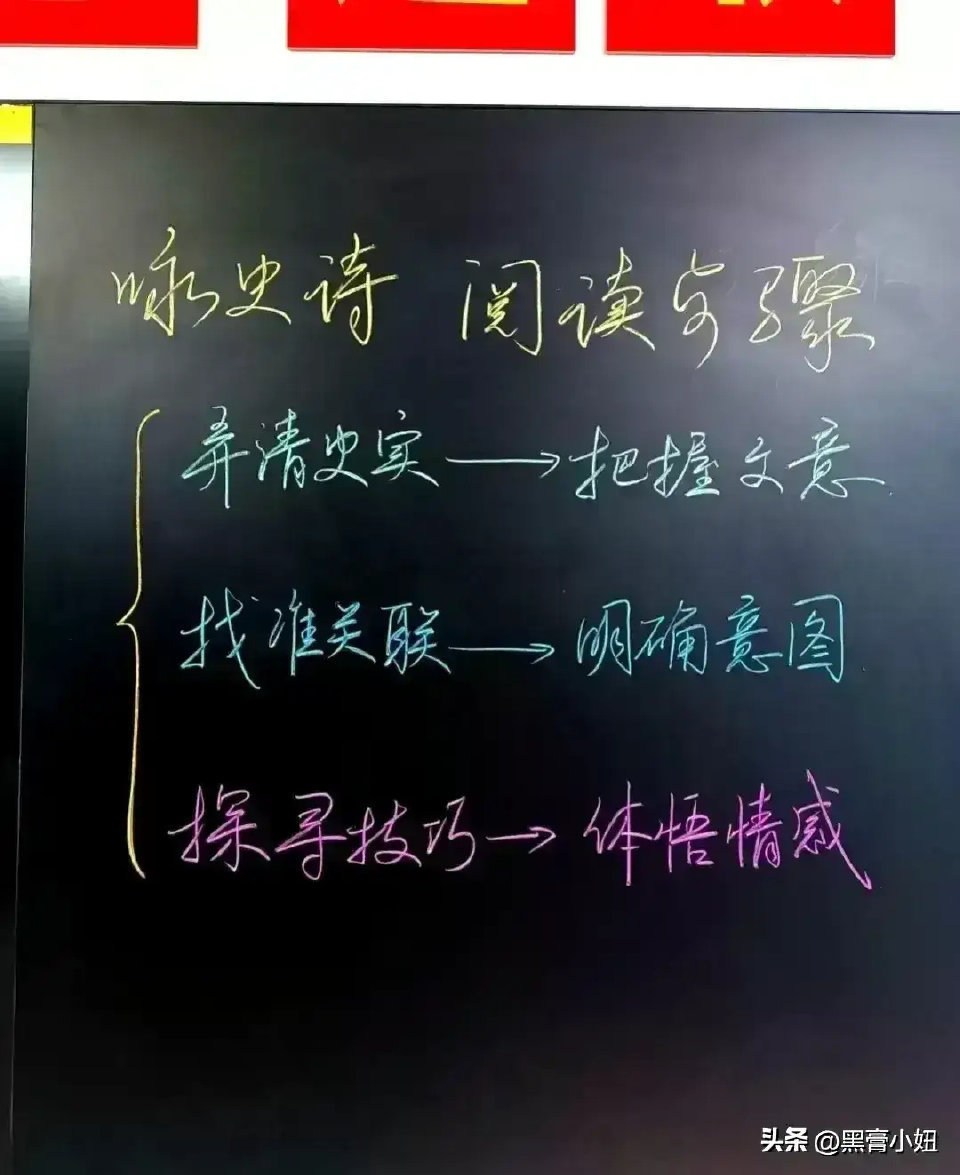 咏史诗 阅读步骤
弄清史实→把握文意
找准关联→明确意图
探寻技巧→体悟情感
头条 @黑膏小妞